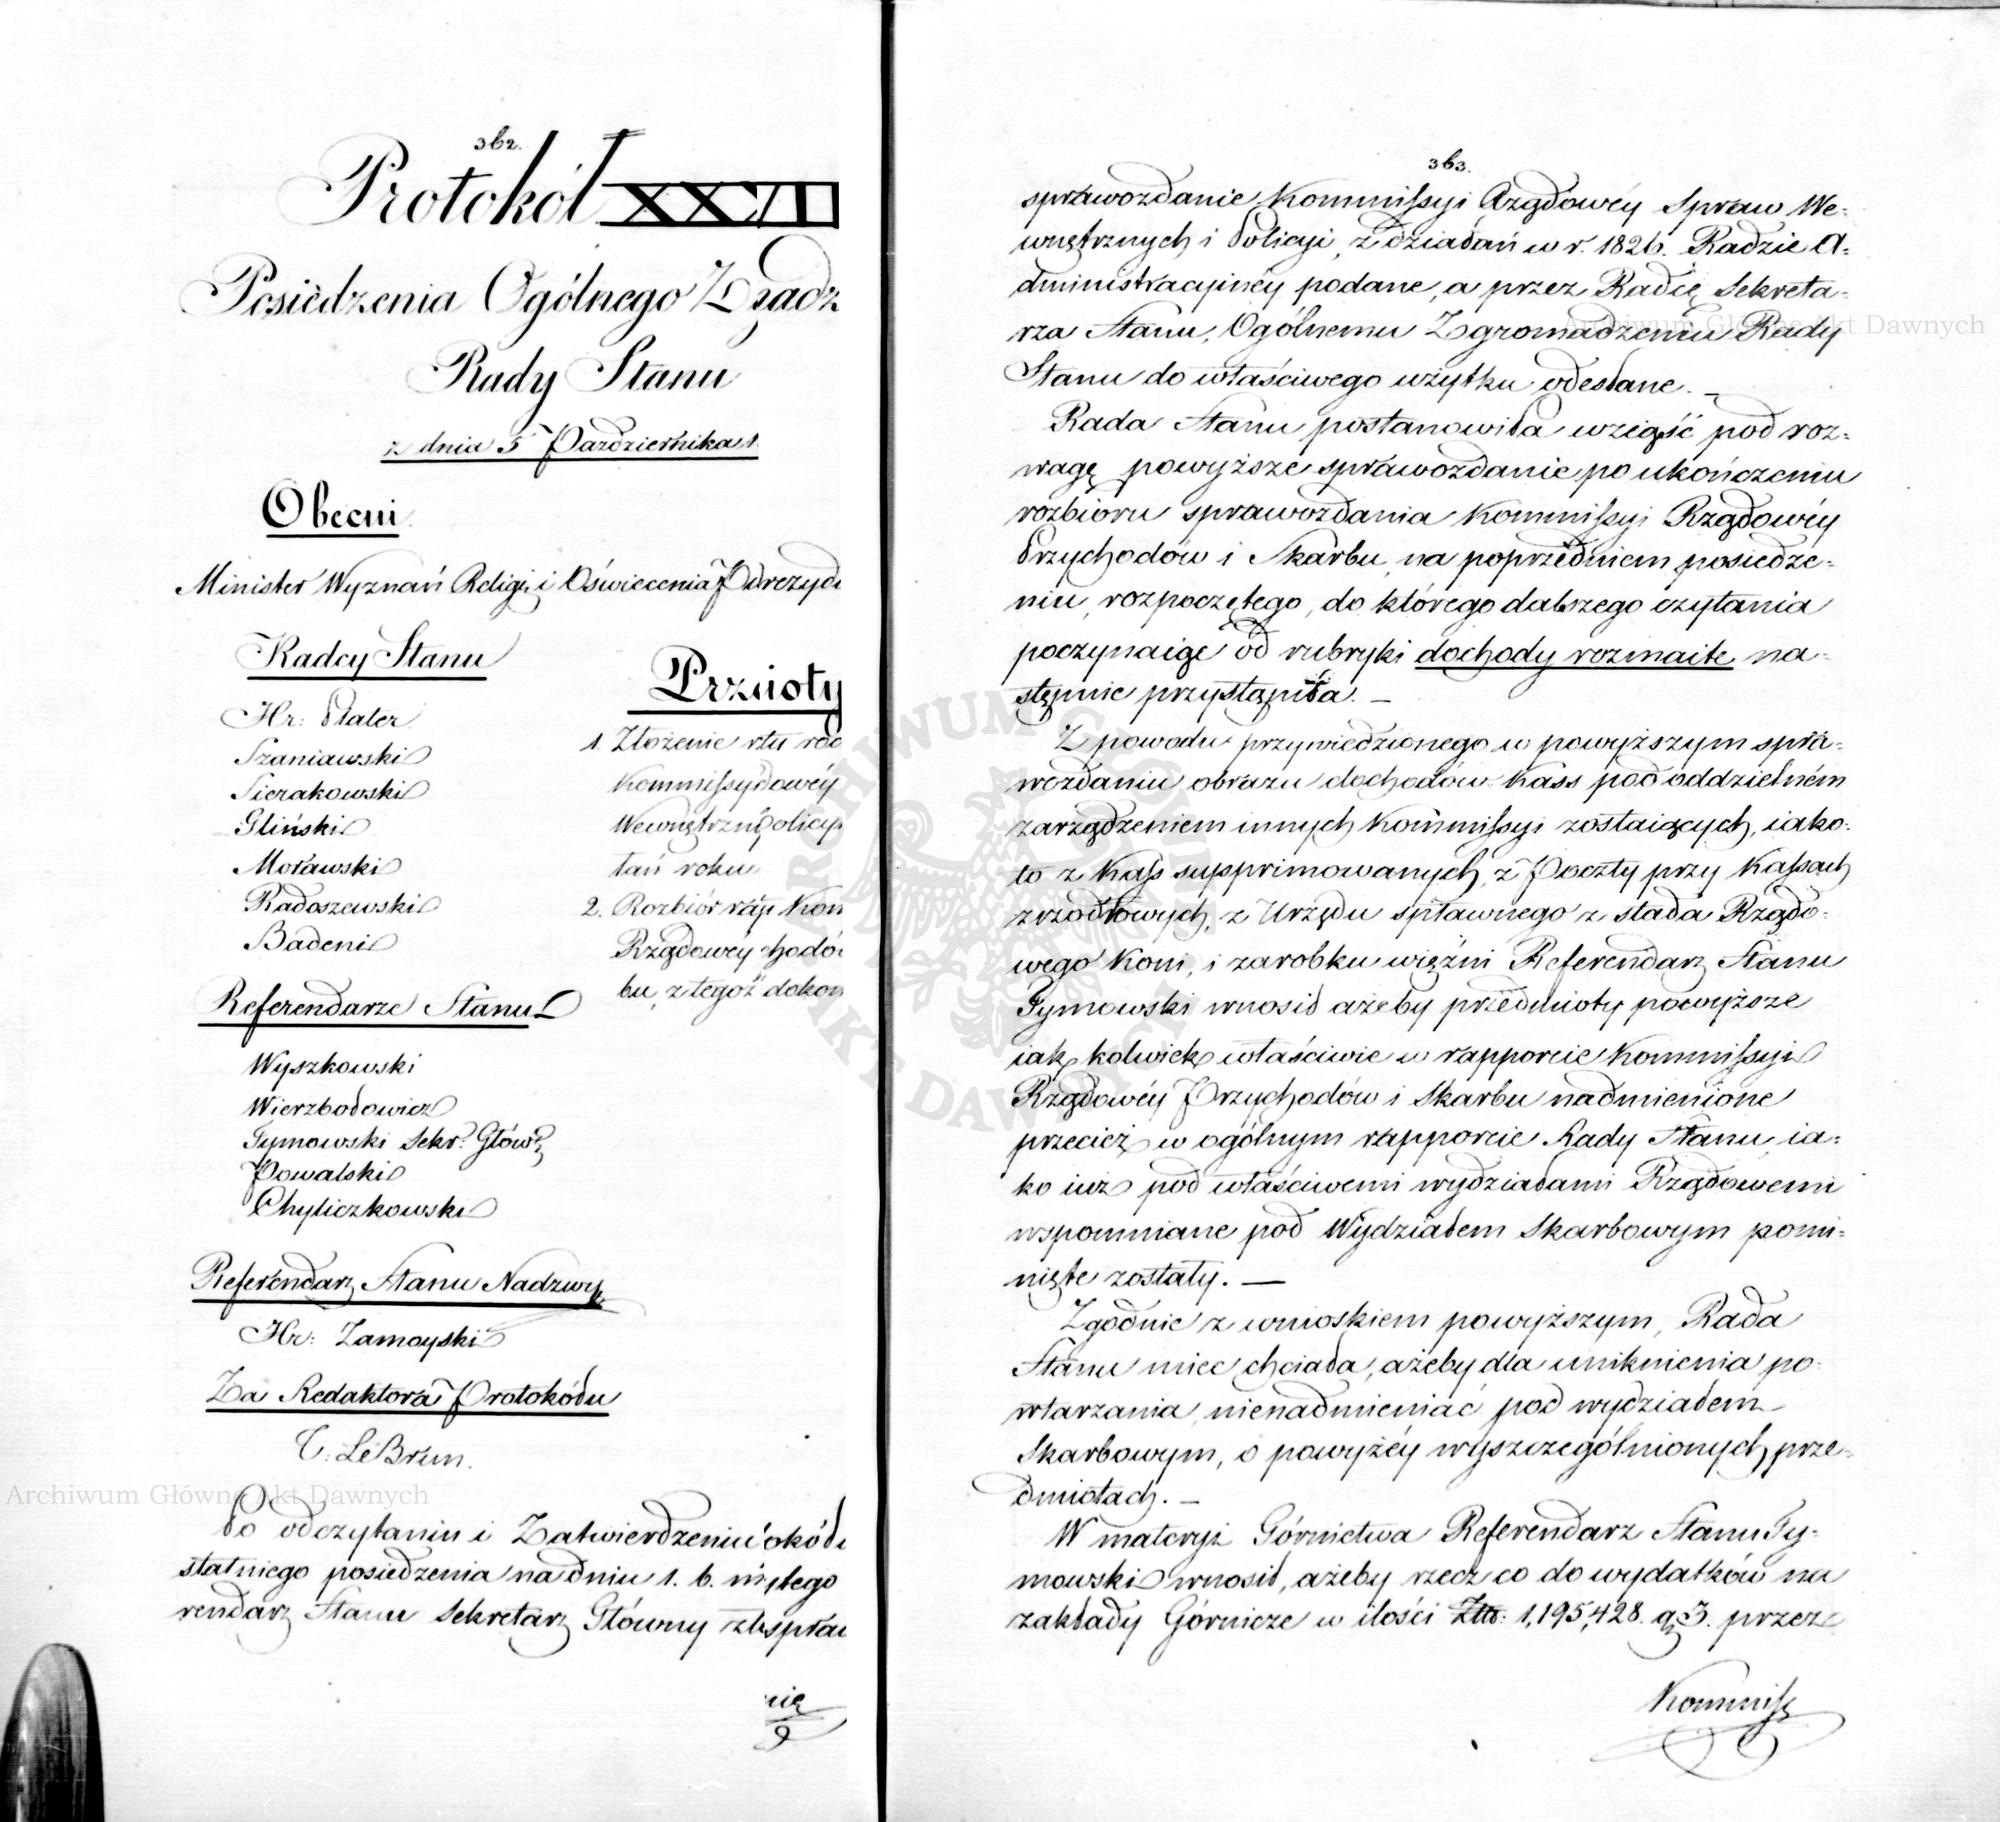 362.
Protokół XXVI
Posiedzenia Ogólnego Zgadz
Rady Stanu
z dnia 5 Pazdziernika 1
Obecni
Minister Wyznań Religii i Oświecenia
Radcy Stanu
Hr: Plater
Szaniawski
Sierakowski
Gliński
Morawski
Radoszewski
Badeni
Referendarze Stanu
Wyszkowski
Wierzbołowicz
Tymowski Sekr: Głów:
Powalski
Chyliczkowski
Referendarz Stanu Nadzwy
Hr: Zamoyski
Za Redaktora Protokółu
C. LeBrun.
1. Złożenie
2. Rozbiór
Rządowéy chodó
bu, z tegoż dokon
tań roku
Po odczytaniu i Zatwierdzeniu okółu
statniego posiedzenia na dniu 1. b. m
rendarz Stanu Sekretarz Główny spraw
nia
363.
sprawozdanie Kommissyi Rządowéy Spraw We-
wnętrznych i Policyi, z działań w r. 1826. Radzie A-
dministracyinéy podane, a przez Radcę Sekreta-
rza Stanu, Ogólnemu Zgromadzeniu Rady
Stanu do właściwego użytku odesłane. –
Rada Stanu postanowiła wziąść pod roz-
wagę powyższe sprawozdanie po ukończeniu
rozbioru sprawozdania Kommissyi Rządowéy
Przychodów i Skarbu, na poprzedniem posiedze-
niu, rozpoczętego, do którego dalszego czytania
poczynaiąc od rubryki dochody rozmaite na-
stępnie przystąpiła. –
Z powodu przywiedzionego w powyższym spra-
wozdaniu obrazu dochodów Kass pod oddzielném
zarządzeniem innych Kommissyi zostaiących, iako-
to z Kass supprimowanych, z Poczty przy Kassach
zrzodłowych, z Urzędu spławnego z stada Rządo-
wego Koni, i zarobku więźni Referendarz Stanu
Tymowski wnosił ażeby przedmioty powyższe
iak kolwiek właściwie w rapporcie Kommissyi
Rządowéy Przychodów i Skarbu nadmienione
przecież w ogólnym rapporcie Rady Stanu, ia-
ko iuż pod właściwemi wydziałami Rządowemi
wspomniane pod Wydziałem Skarbowym pomi-
nięte zostały. —
Zgodnie z wnioskiem powyższym, Rada
Stanu mieć chciała, ażeby dla uniknienia po-
wtarzania nienadmieniać pod wydziałem
Skarbowym, o powyżéy wyszczególnionych prze-
dmiotach. –
W materyi Górnictwa Referendarz Stanu Ty-
mowski wnosił, ażeby rzecz co do wydatków na
zakłady Górnicze w ilości Złt: 1,195,428. g 3. przez
Kommiss
Archiwum Główne Akt Dawnych
Archiwum Główne Akt Dawnych